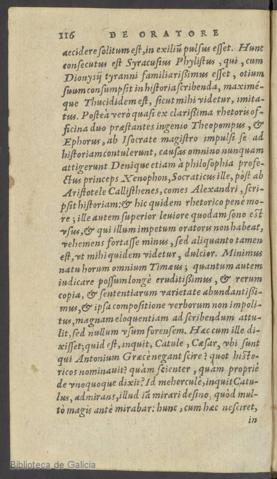 116 DE ORATORE
accidere solitum est, in exiliũ pulsus esset. Hunc
consecutus est Syracusius Phylistus, qui, cum
Dionysij tyranni familiarissimus esset, otium
suum consumpsit in historia scribenda, maximé-
que Thucididem est, sicut mihi videtur, imita-
tus. Posteà verò quasi ex clarissima rhetoris of-
ficina duo præstantes ingenio Theopompus, &
Ephorus, ab Isocrate magistro impulsi se ad
historiam contulerunt, causas omnino nunquam
attigerunt Denique etiam à philosophia profe-
ctus princeps Xenophon, Socraticus ille, post ab
Aristotele Callisthenes, comes Alexandri, scri-
psit historiam: & hic quidem rhetorico penè mo-
re; ille autem superior leuiore quodam sono est
vsus, & qui illum impetum oratoris non habeat,
vehemens fortasse minus, sed aliquanto tamen
est, vt mihi quidem videtur, dulcior. Minimus
natu horum omnium Timæus; quantum autem
iudicare possum longè eruditißimus, & rerum
copia, & sententiarum varietate abundantißi-
mus, & ipsa compositione verborum non impoli-
tus, magnam eloquentiam ad scribendum attu-
lit, sed nullum vsum forensem. Hæc cum ille di-
xisset; quid est, inquit, Catule, Cæsar, vbi sunt
qui Antonium Græcè negant scire? quot histo-
ricos nominauit? quàm scienter, quàm propriè
de vnoquoque dixit? Id meherculè, inquit Catu-
lus, admirans, illud iã mirari desino, quòd mul-
tò magis antè mirabar: hunc, cum hæc nesciret,
in
Biblioteca de Galicia